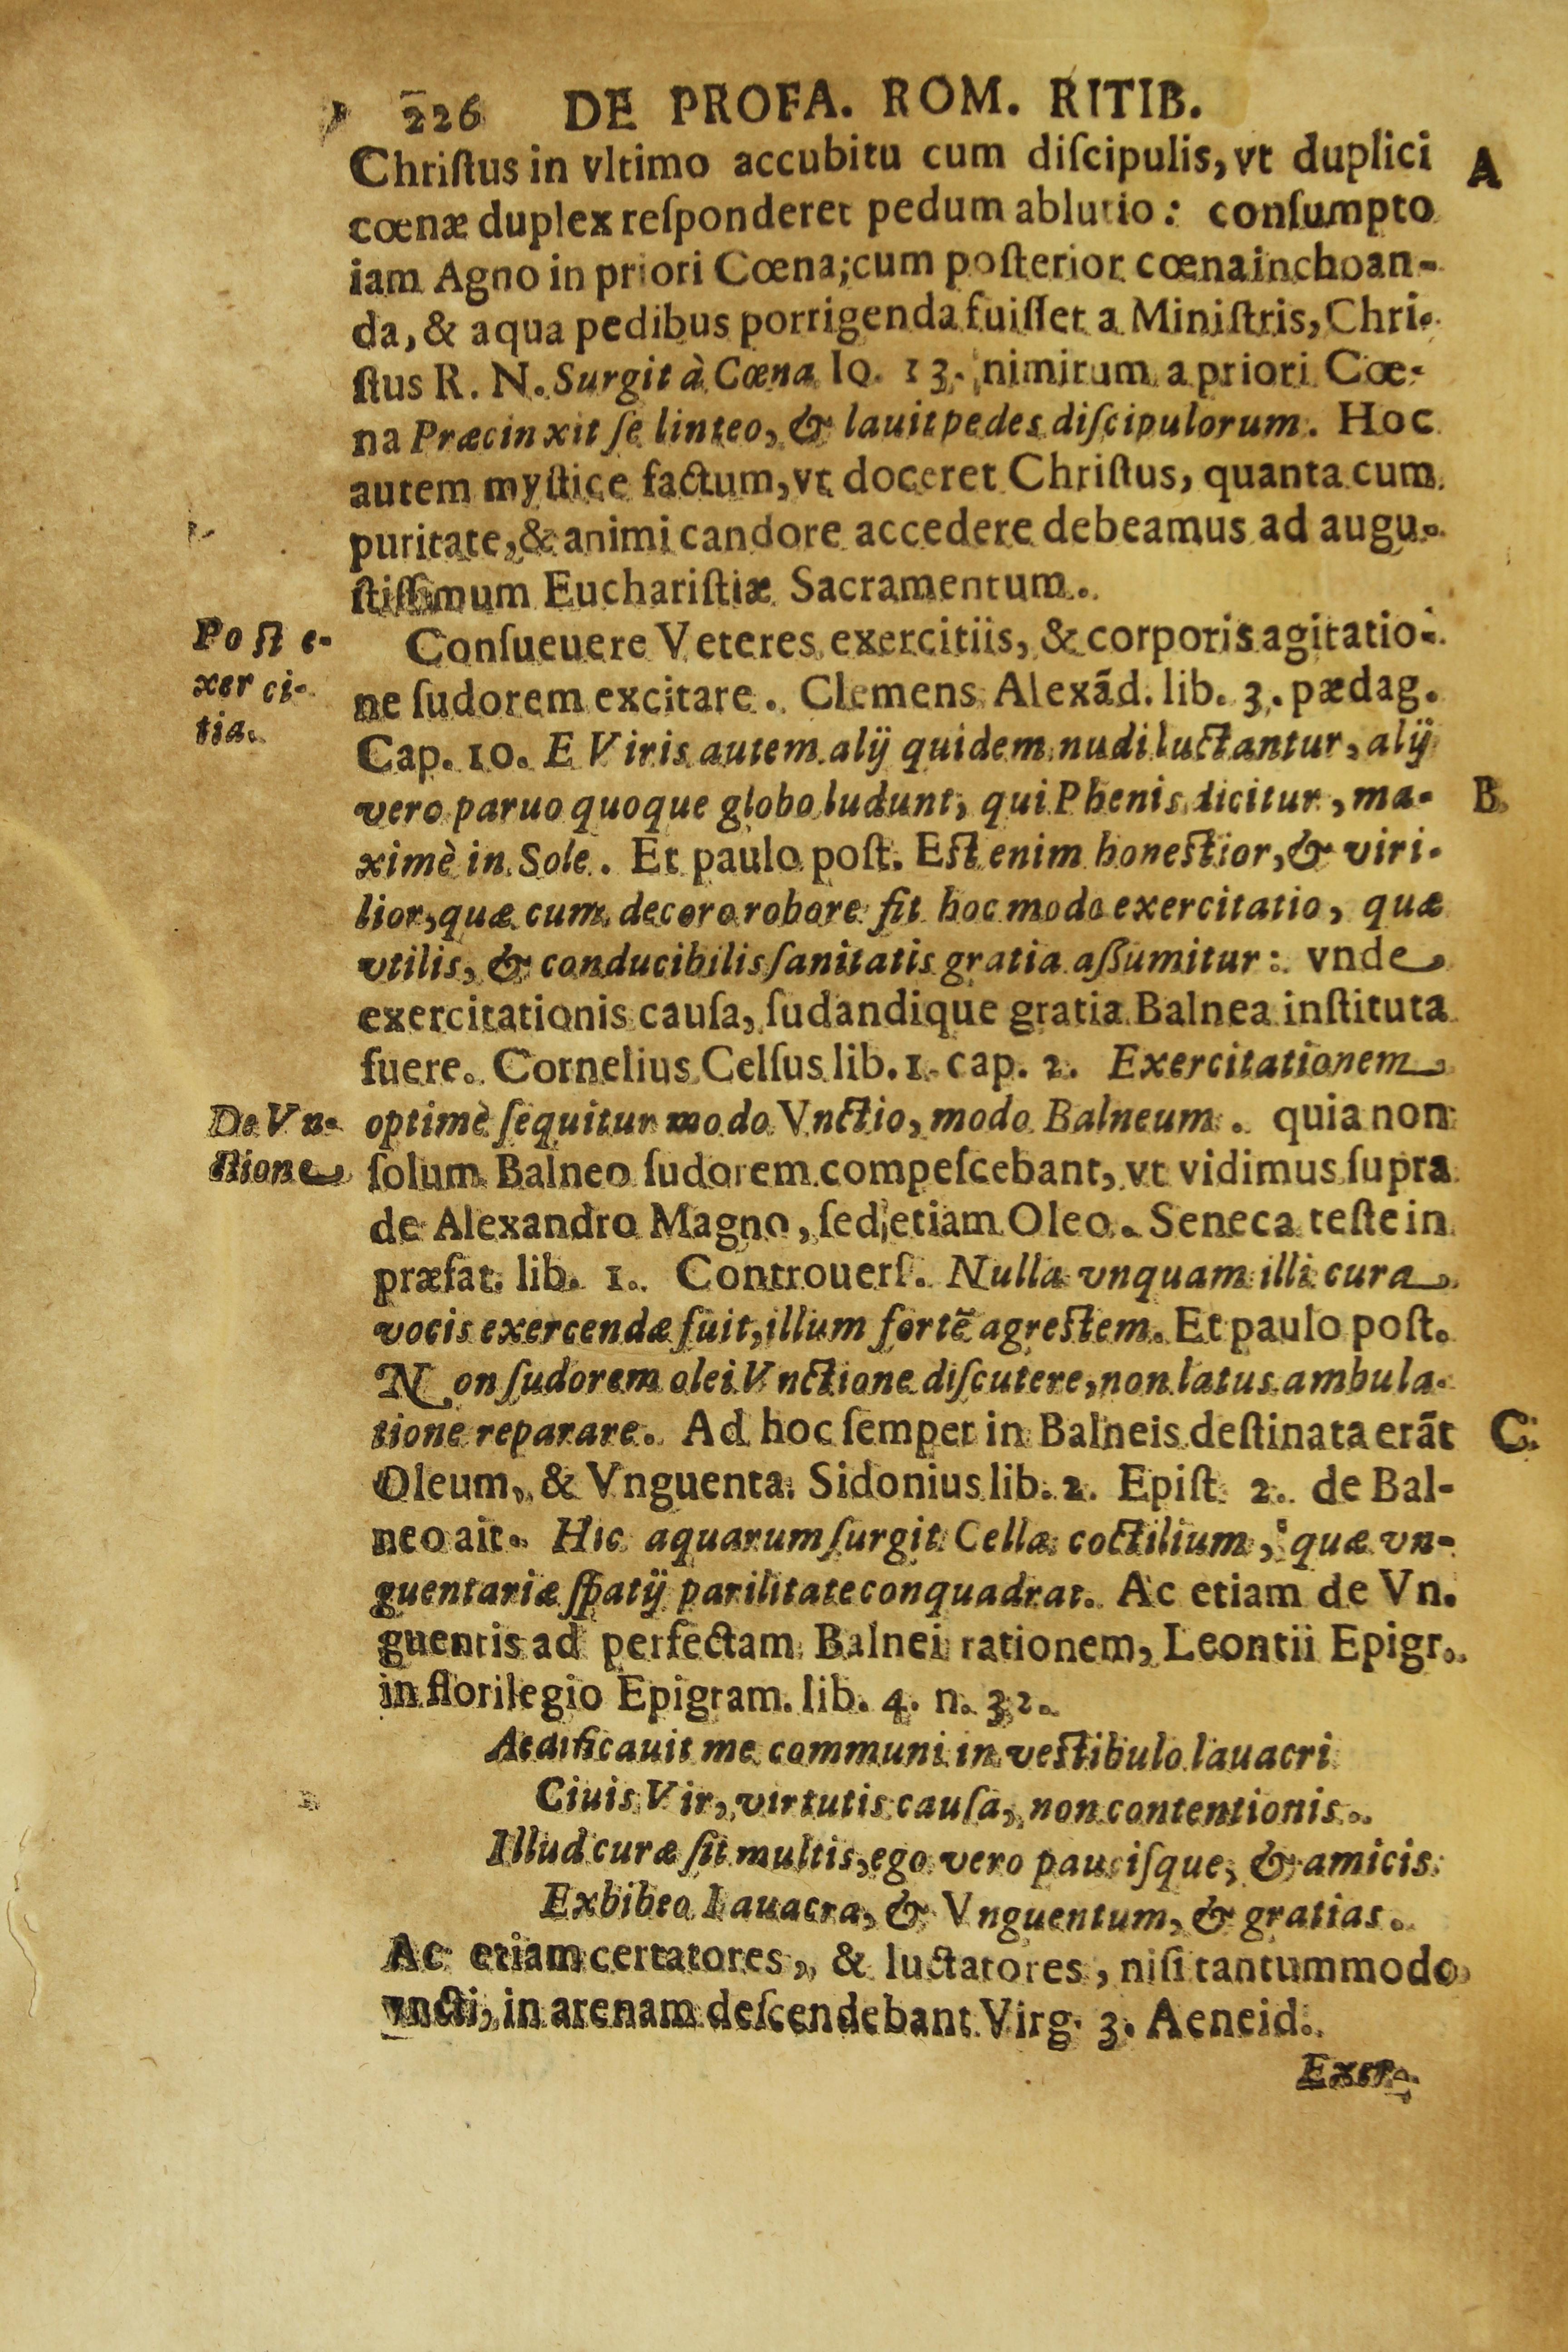 226 DE PROFA. ROM. RITIB.
Chriſtus in vltimo accubitu cum diſcipulis, vt duplici
A
cœnæ duplex reſponderet pedum ablutio: conſumpto
iam Agno in priori Cœna; cum poſterior cœna inchoan-
da, & aqua pedibus porrigenda fuiſſet a Miniſtris, Chri-
ſtus R. N. Surgit à Cœna Io. 13. nimirum a priori Cœ-
na Præcinxit ſe linteo, & lauit pedes diſcipulorum. Hoc
autem myſtice factum, vt doceret Chriſtus, quanta cum
puritate, & animi candore accedere debeamus ad augu-
ſtiſſimum Euchariſtiæ Sacramentum.
Poſt e-
xerci-
tia.
Conſueuere Veteres exercitiis, & corporis agitatio-
ne ſudorem excitare. Clemens Alexãd. lib. 3. pædag.
Cap. 10. E Viris autem alij quidem nudi luctantur, alij
vero paruo quoque globo ludunt, qui Phenis dicitur, ma-
B
ximè in Sole. Et paulo poſt. Eſt enim honeſtior, & viri-
lior, quæ cum decoro robore fit hoc modo exercitatio, quæ
vtilis, & conducibilis ſanitatis gratia aſſumitur: vnde
exercitationis cauſa, ſudandique gratia Balnea inſtituta
fuere. Cornelius Celſus lib. 1. cap. 2. Exercitationem
De Vn-
ctione
optimè ſequitur modo Vnctio, modo Balneum. quia non
ſolum Balneo ſudorem compeſcebant, vt vidimus ſupra
de Alexandro Magno, ſed etiam Oleo. Seneca teſte in
præfat. lib. 1. Controuerſ. Nulla vnquam illi cura
vocis exercendæ fuit, illum fortẽ agreſtem. Et paulo poſt.
Non ſudorem olei Vnctione diſcutere, non latus ambula-
tione reparare. Ad hoc ſemper in Balneis deſtinata erãt
C
Oleum, & Vnguenta. Sidonius lib. 2. Epiſt. 2. de Bal-
neo ait. Hic aquarum ſurgit Cella coctilium, quæ vn-
guentariæ ſpatij parilitate conquadrat. Ac etiam de Vn.
guentis ad perfectam Balnei rationem, Leontii Epigr.
in florilegio Epigram. lib. 4. n. 32.
Aedificauit me communi in veſtibulo lauacri
Ciuis Vir, virtutis cauſa, non contentionis.
Illud curæ ſit multis, ego vero pauciſque, & amicis
Exbibeo Lauacra, & Vnguentum, & gratias.
Ac etiam certatores, & luctatores, niſi tantummodo
vncti, in arenam deſcendebant Virg. 3. Aeneid.
Exer-